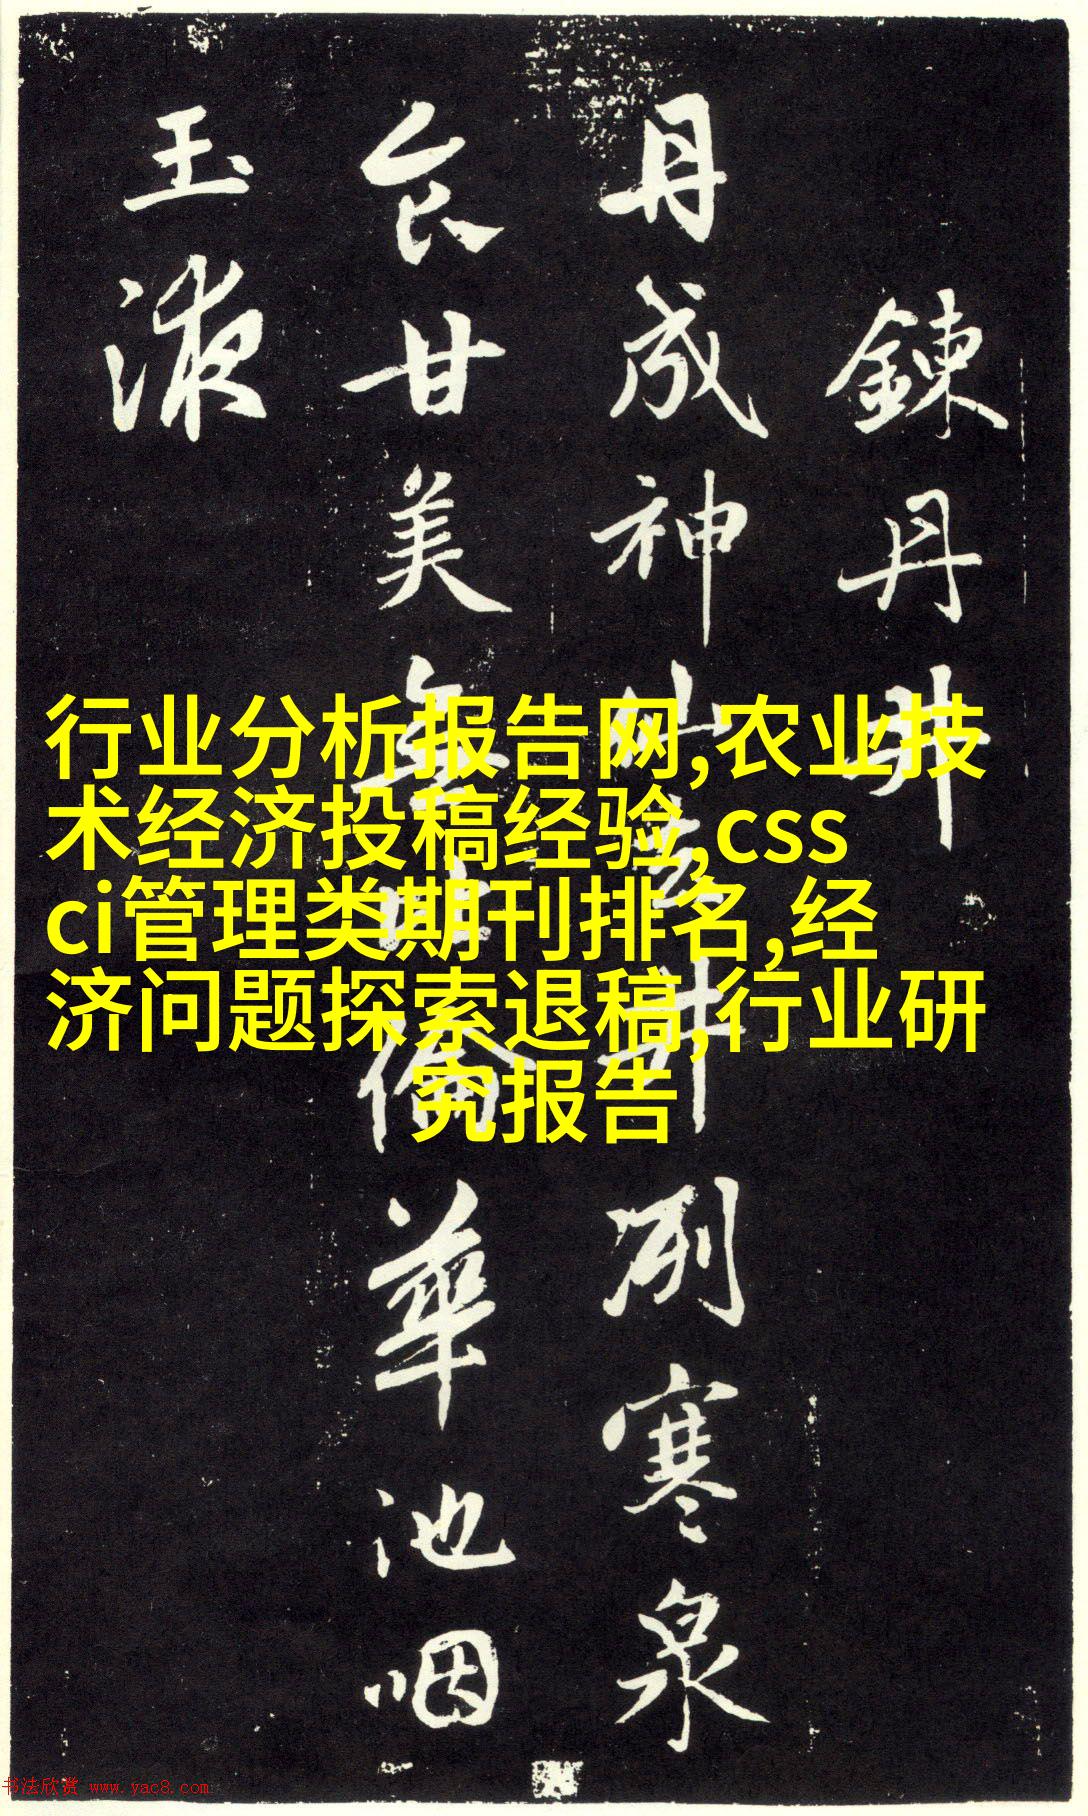 鍊丹井
丹成神仙去井冽寒泉
食甘美無比倫華池咽
玉液
行业分析报告网,农业技
术经济投稿经验,css
ci管理类期刊排名,经
济问题探索退稿,行业研
究报告
书法欣赏 www.yac8.com